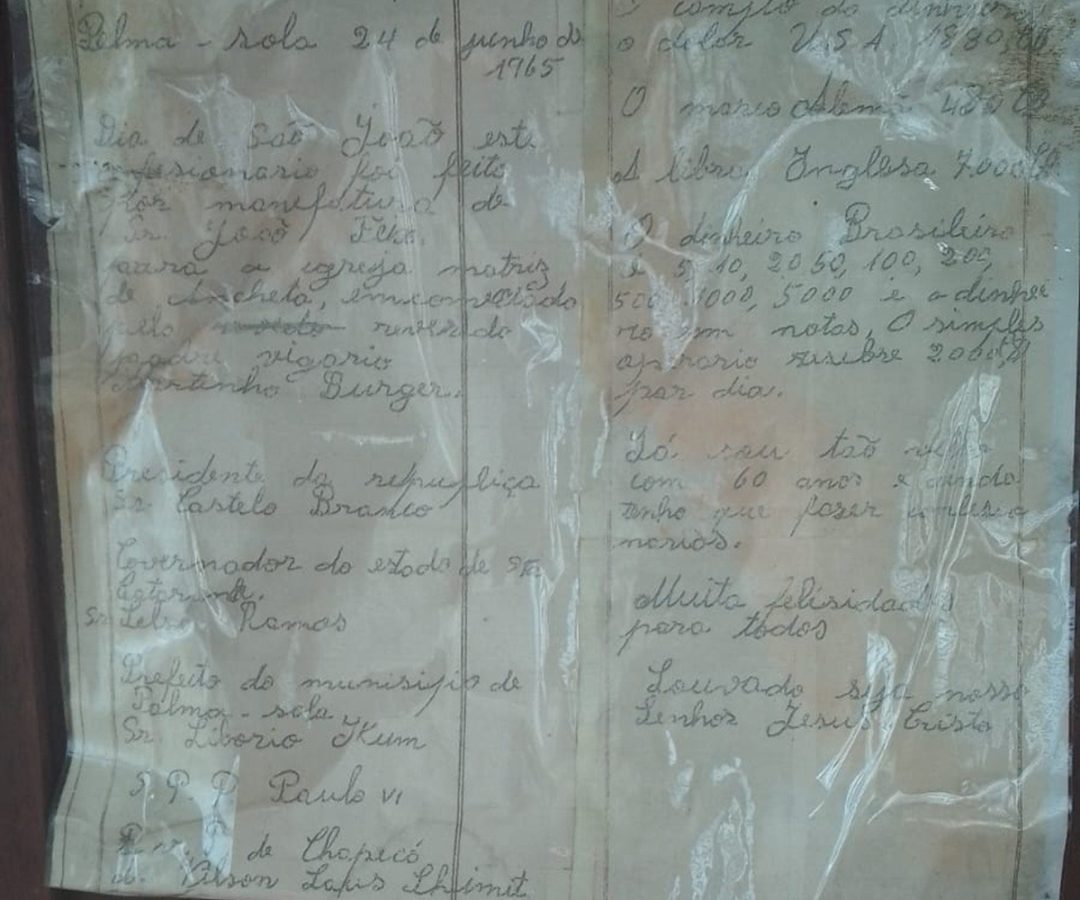 Palma - sola 24 de junho de
1965
Dia de Saõ Joaõ este
comfesionario foi feito
por manefatura de
Sr. Joaõ
para a egreja matriz
de Ancheta, emcomendado
pelo reverendo
padre vigario
Martinho Burger.
Presidente da republiça
Sr Castelo Branco
Governador do estado de
Catarina.
Sr Celso Ramos
Prefeito do munisipio de
Palma - sola
Sr Liborio
S. P. P Paulo VI
de Chapecó
d. Vilson Laus Shimit
O do dinheiro
o dolar U.S.A 1880,00
O marco Alemã 480,00
A libra Inglesa 7.000
O dinheiro Brasileiro
é 5, 10, 20 50, 100, 200,
500, 1000, 5000 e o dinhei
ro em notas, O simples
operario resebre 2000,
por dia.
Já sou taõ velho
com 60 anos e ainda
tenho que fazer comfesio
narios.
Muita felisidades
para todos
Louvado seja nosso
Senhor Jesus Cristo